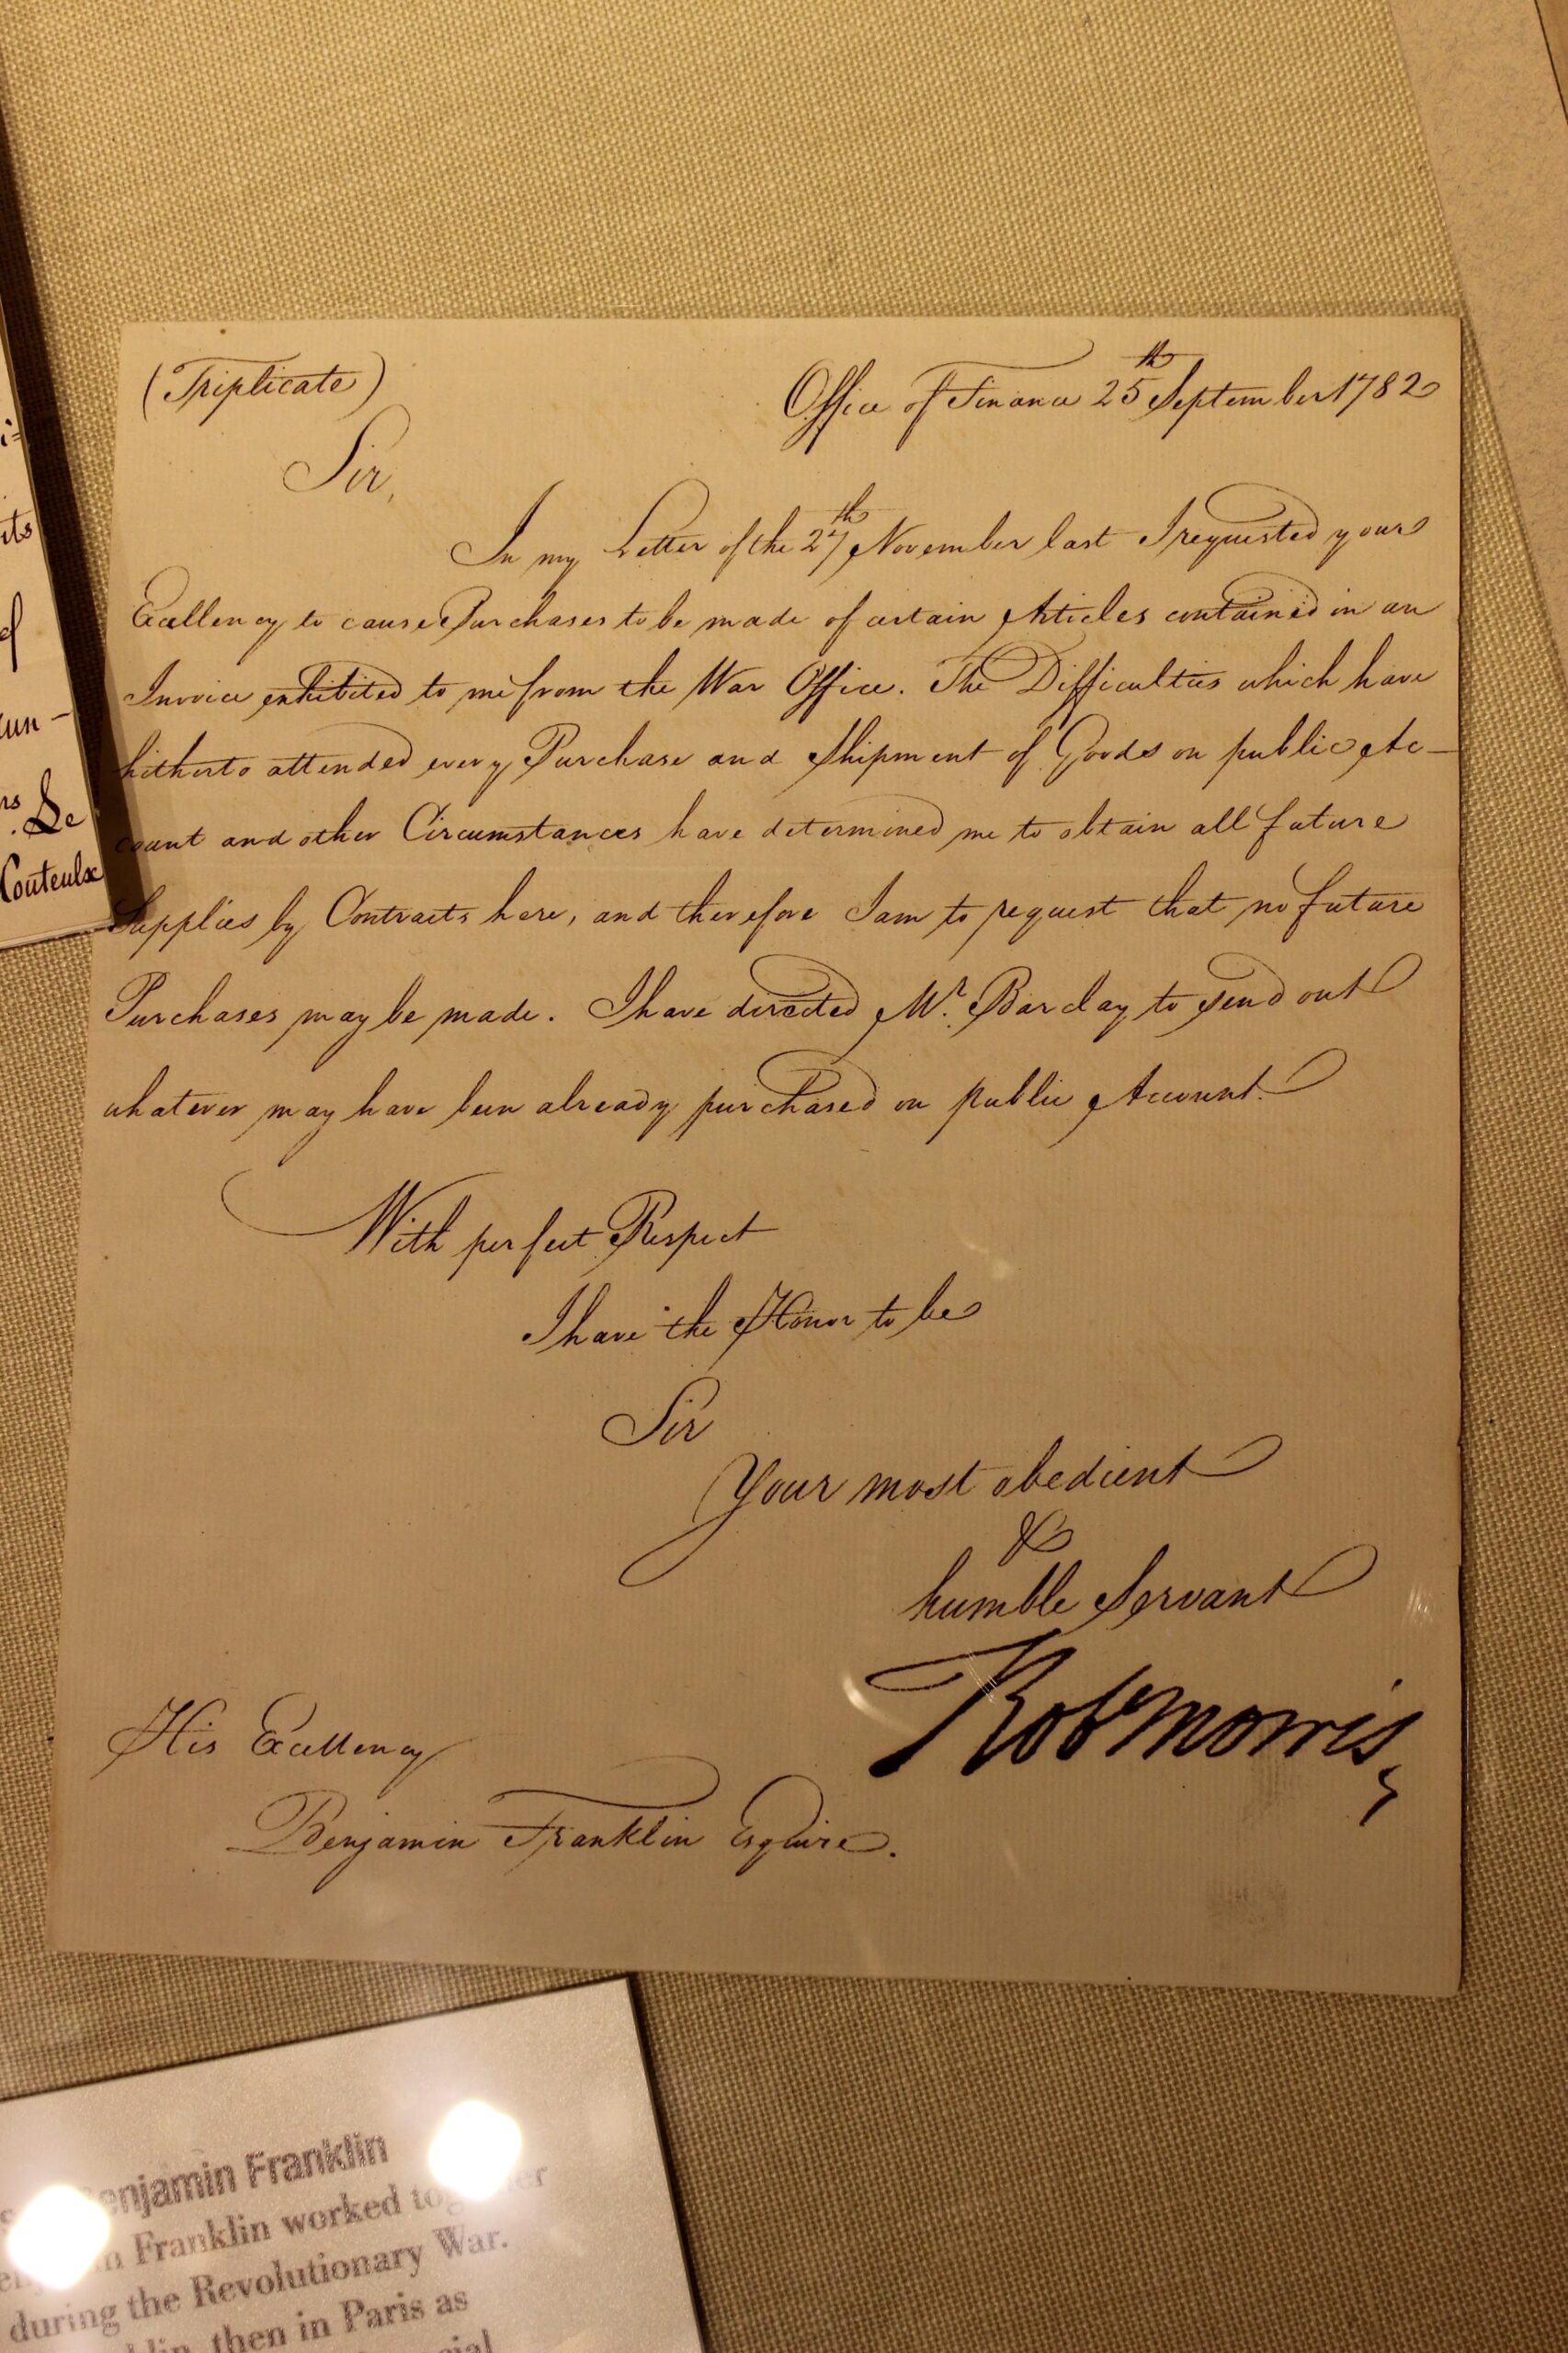 (Triplicate)
Office of Finance 25th September 1782
Sir,
In my Letter of the 27th November last I requested your
Excellency to cause Purchases to be made of certain Articles contained in an
Invoice exhibited to me from the War Office. The Difficulties which have
hitherto attended every Purchase and Shipment of Goods on public Ac-
count and other Circumstances have determined me to obtain all future
Supplies by Contracts here, and therefore I am to request that no future
Purchases may be made. I have directed Mr. Barclay to send out
whatever may have been already purchased on public Account.
With perfect Respect
I have the Honor to be
Sir
Your most obedient
&
humble Servant
Robt Morris
His Excellency
Benjamin Franklin Esquire.
its
of
Le
Couteulx
Benjamin Franklin
Franklin worked together
during the Revolutionary War.
then in Paris as